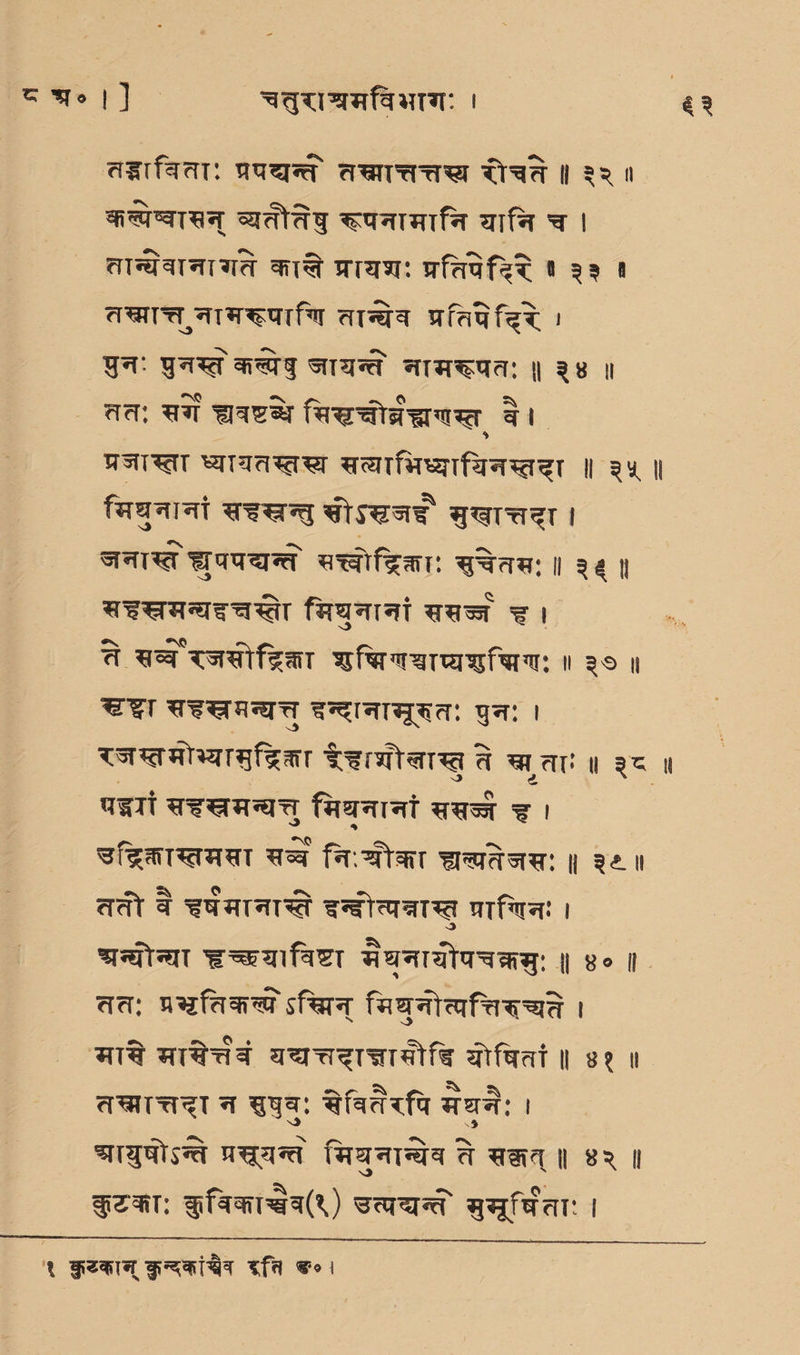 ८ अ० ।] चतुराश्रमविभागः । ६३
तद्भाविताः प्रपद्यन्ते तस्मात्तत्तस्य रोचते ॥ ३२ ॥
कल्पेष्वासन् व्यतीतेषु रूपनामानि यानि च ।
तान्येवानागते काले प्रायशः प्रतिपेदिरे ॥ ३३ ॥
तस्मात्तु नामरूपाणि तान्येव प्रतिपेदिरे ।
पुनः पुनस्ते कल्पेषु जायन्ते नामरूपतः ॥ ३४ ॥
ततः सर्गे ह्यवष्टब्धे सिसृक्षोर्ब्रह्मणस्तु वै ।
प्रजास्ता ध्यायतस्तस्य सत्याभिध्यायिनस्तदा ॥ ३५ ॥
मिथुनानां सहस्रन्तु सोऽसृजद्वै मुखात्तदा ।
जनास्ते ह्युपपद्यन्ते सत्त्वोद्रिक्ताः सुचेतसः ॥ ३६ ॥
सहस्रमन्यद्वक्षस्तो मिथुनानां ससर्ज ह ।
ते सर्वे रजसोद्रिक्ता शुष्मिणश्चाप्यशुष्मिणः ॥ ३७ ॥
सृष्ट्वा सहस्रमन्यत्तु द्वन्द्वानामूरुतः पुनः ।
रजस्तमोभ्यामुद्रिक्ता ईहाशीलास्तु ते स्मृताः ॥ ३८ ॥
पद्भ्यां सहस्रमन्यत्तु मिथुनानां ससर्ज ह ।
उद्रिक्तास्तमसा सर्वे निःश्रीका ह्यल्पतेजसः ॥ ३९ ॥
ततो वै हर्षमाणास्ते द्वन्द्वोत्पन्नास्तु प्राणिनः ।
अन्योन्या हृच्छयाविष्टा मैथुनायोपचक्रमुः ॥ ४० ॥
ततः प्रभृतिकल्पेऽस्मिन् मिथुनोत्पत्तिरुच्यते ।
मासे योषितां ॥ ४१ ॥
तस्मात्तदा न सुषुवुः सेवितैरपि मैथुनैः ।
आयुषोऽन्ते प्रसूयन्ते मिथुनान्येव ते सकृत् ॥ ४२ ॥
कुटकाः कुविकाश्चैव(१) उत्पद्यन्ते मुमूर्षिताः ।
१ कूटकान् इति क० ।